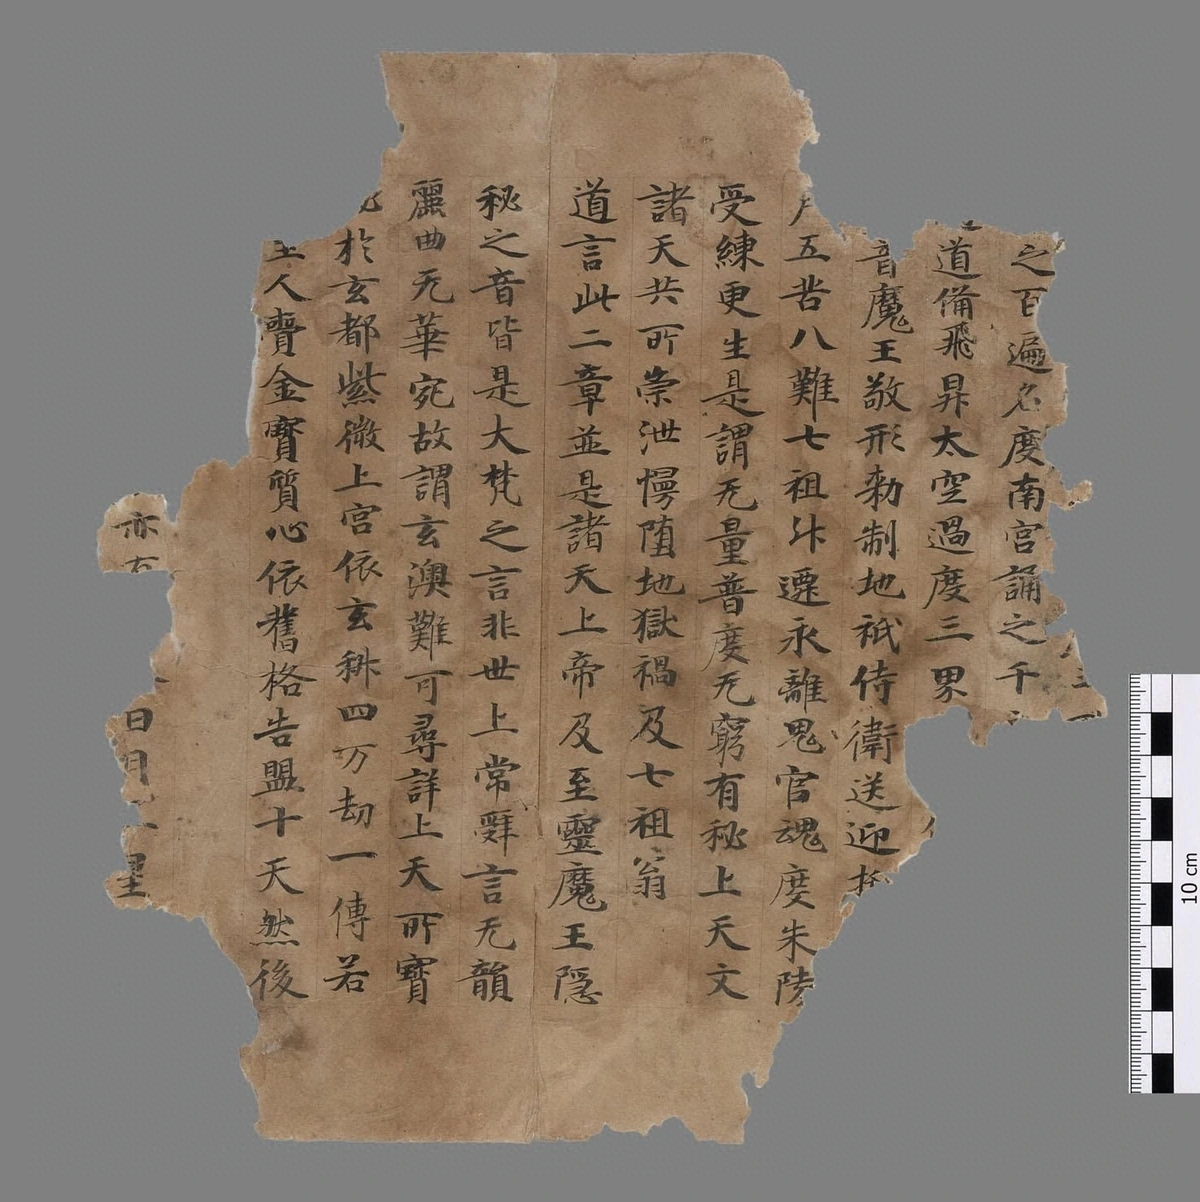 之百遍名度南宮誦之千
道備飛昇太空過度三界
音魔王敬形勑制地祇侍衛送迎
五苦八難七祖升遷永離鬼官魂度朱陵
受練更生是謂无量普度无窮有秘上天文
諸天共所崇泄慢墮地獄禍及七祖翁
道言此二章並是諸天上帝及至靈魔王隱
秘之音皆是大梵之言非世上常辭言无韻
麗曲无華宛故謂玄澳難可尋詳上天所寶
於玄都紫微上宮依玄科四万劫一傳若
人賷金寶質心依舊格告盟十天然後
亦有
日月
星